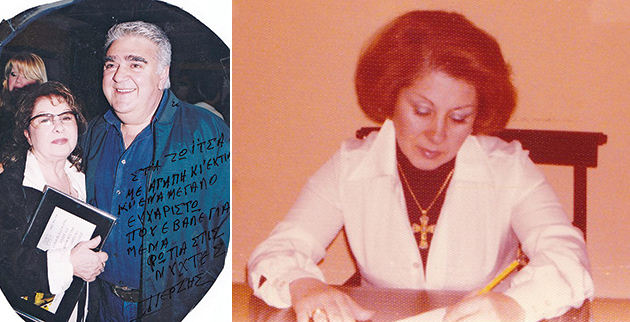 ΣΤΑ ΖΩΪΤΣΑ
ΜΕ ΑΓΑΠΗ ΚΙ' ΕΚΤΙΜ
ΚΙ' ΕΝΑ ΜΕΓΑΛΟ
ΕΥΧΑΡΙΣΤΩ
ΠΟΥ ΕΒΑΛΕ ΓΙΑ
ΜΕΝΑ
ΦΩΤΙΑ ΣΤΙΣ
ΝΥΧΤΕΣ
ΤΕΡΖΗΣ